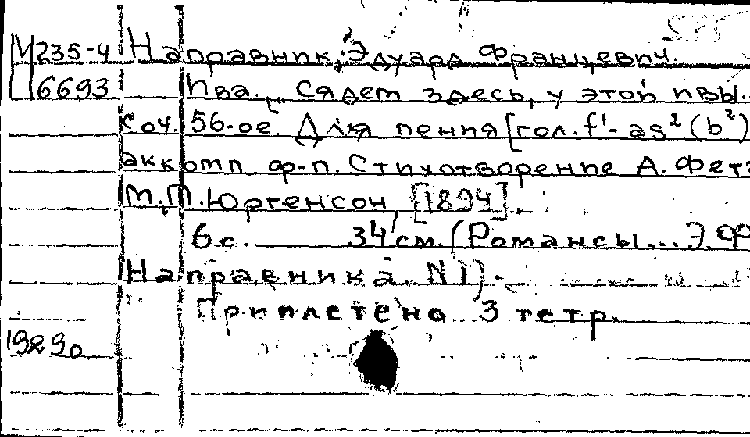 М235-4 Направник, Эдуард Францевич.
6693 Ива... Сядем здесь, у этой ивы.
Соч. 56-ое Для пения [гол. f¹-as²(b²)
аккомп ф-п. Стихотворение А. Фета
М, П. Юргенсон, [1894].
6 с. 34 см. (Романсы... Э. Ф
Направника. N 1).
Приплетено 3 тетр.
19290